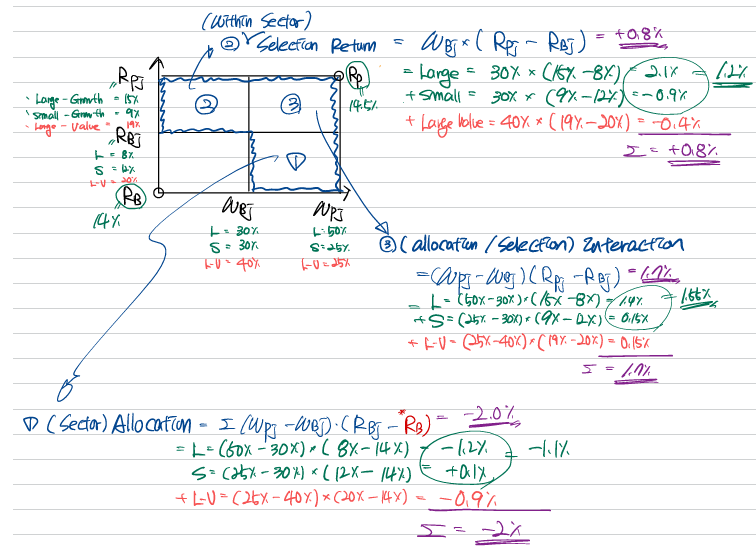 (Within Sector)
② Selection Return = W_Bj × (R_Pj - R_Bj) = +0.8%
= Large = 30% × (15% - 8%) = 2.1% = 1.2%
+ Small = 30% × (9% - 12%) = -0.9%
+ Large Value = 40% × (19% - 20%) = -0.4%
Σ = +0.8%
R_Pj
Large - Growth = 15%
Small - Growth = 9%
Large - Value = 19%
R_Bj
L = 8%
S = 12%
L-V = 20%
R_B
14%
R_P
14.5%
②
③
①
W_Bj
L = 30%
S = 30%
L-V = 40%
W_Pj
L = 50%
S = 25%
L-V = 25%
③ (allocation / Selection) Interaction
= (W_Pj - W_Bj) (R_Pj - R_Bj) = 1.7%
= L = (50% - 30%) × (15% - 8%) = 1.4% = 1.55%
+ S = (25% - 30%) × (9% - 12%) = 0.15%
+ L-V = (25% - 40%) × (19% - 20%) = 0.15%
Σ = 1.7%
① (Sector) Allocation = Σ (W_Pj - W_Bj) · (R_Bj - *R_B) = -2.0%
= L = (50% - 30%) × (8% - 14%) = -1.2% = -1.1%
S = (25% - 30%) × (12% - 14%) = +0.1%
+ L-V = (25% - 40%) × (20% - 14%) = -0.9%
Σ = -2%